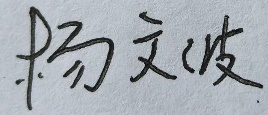 杨文波